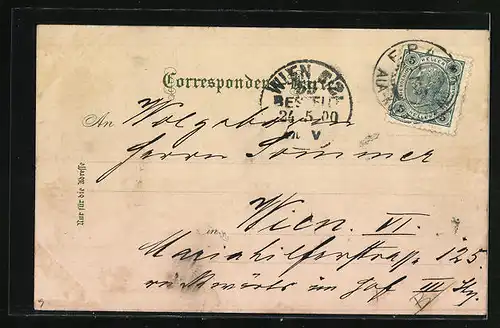 Correspondenz-Karte
WIEN 6/2
BESTELLT
24.5.00
V
An Wolgeboren
Herrn Sommer
Nur für die Adresse
in Wien. VI.
Mariahilferstrasse 125.
rückwärts im Hof III Stg.